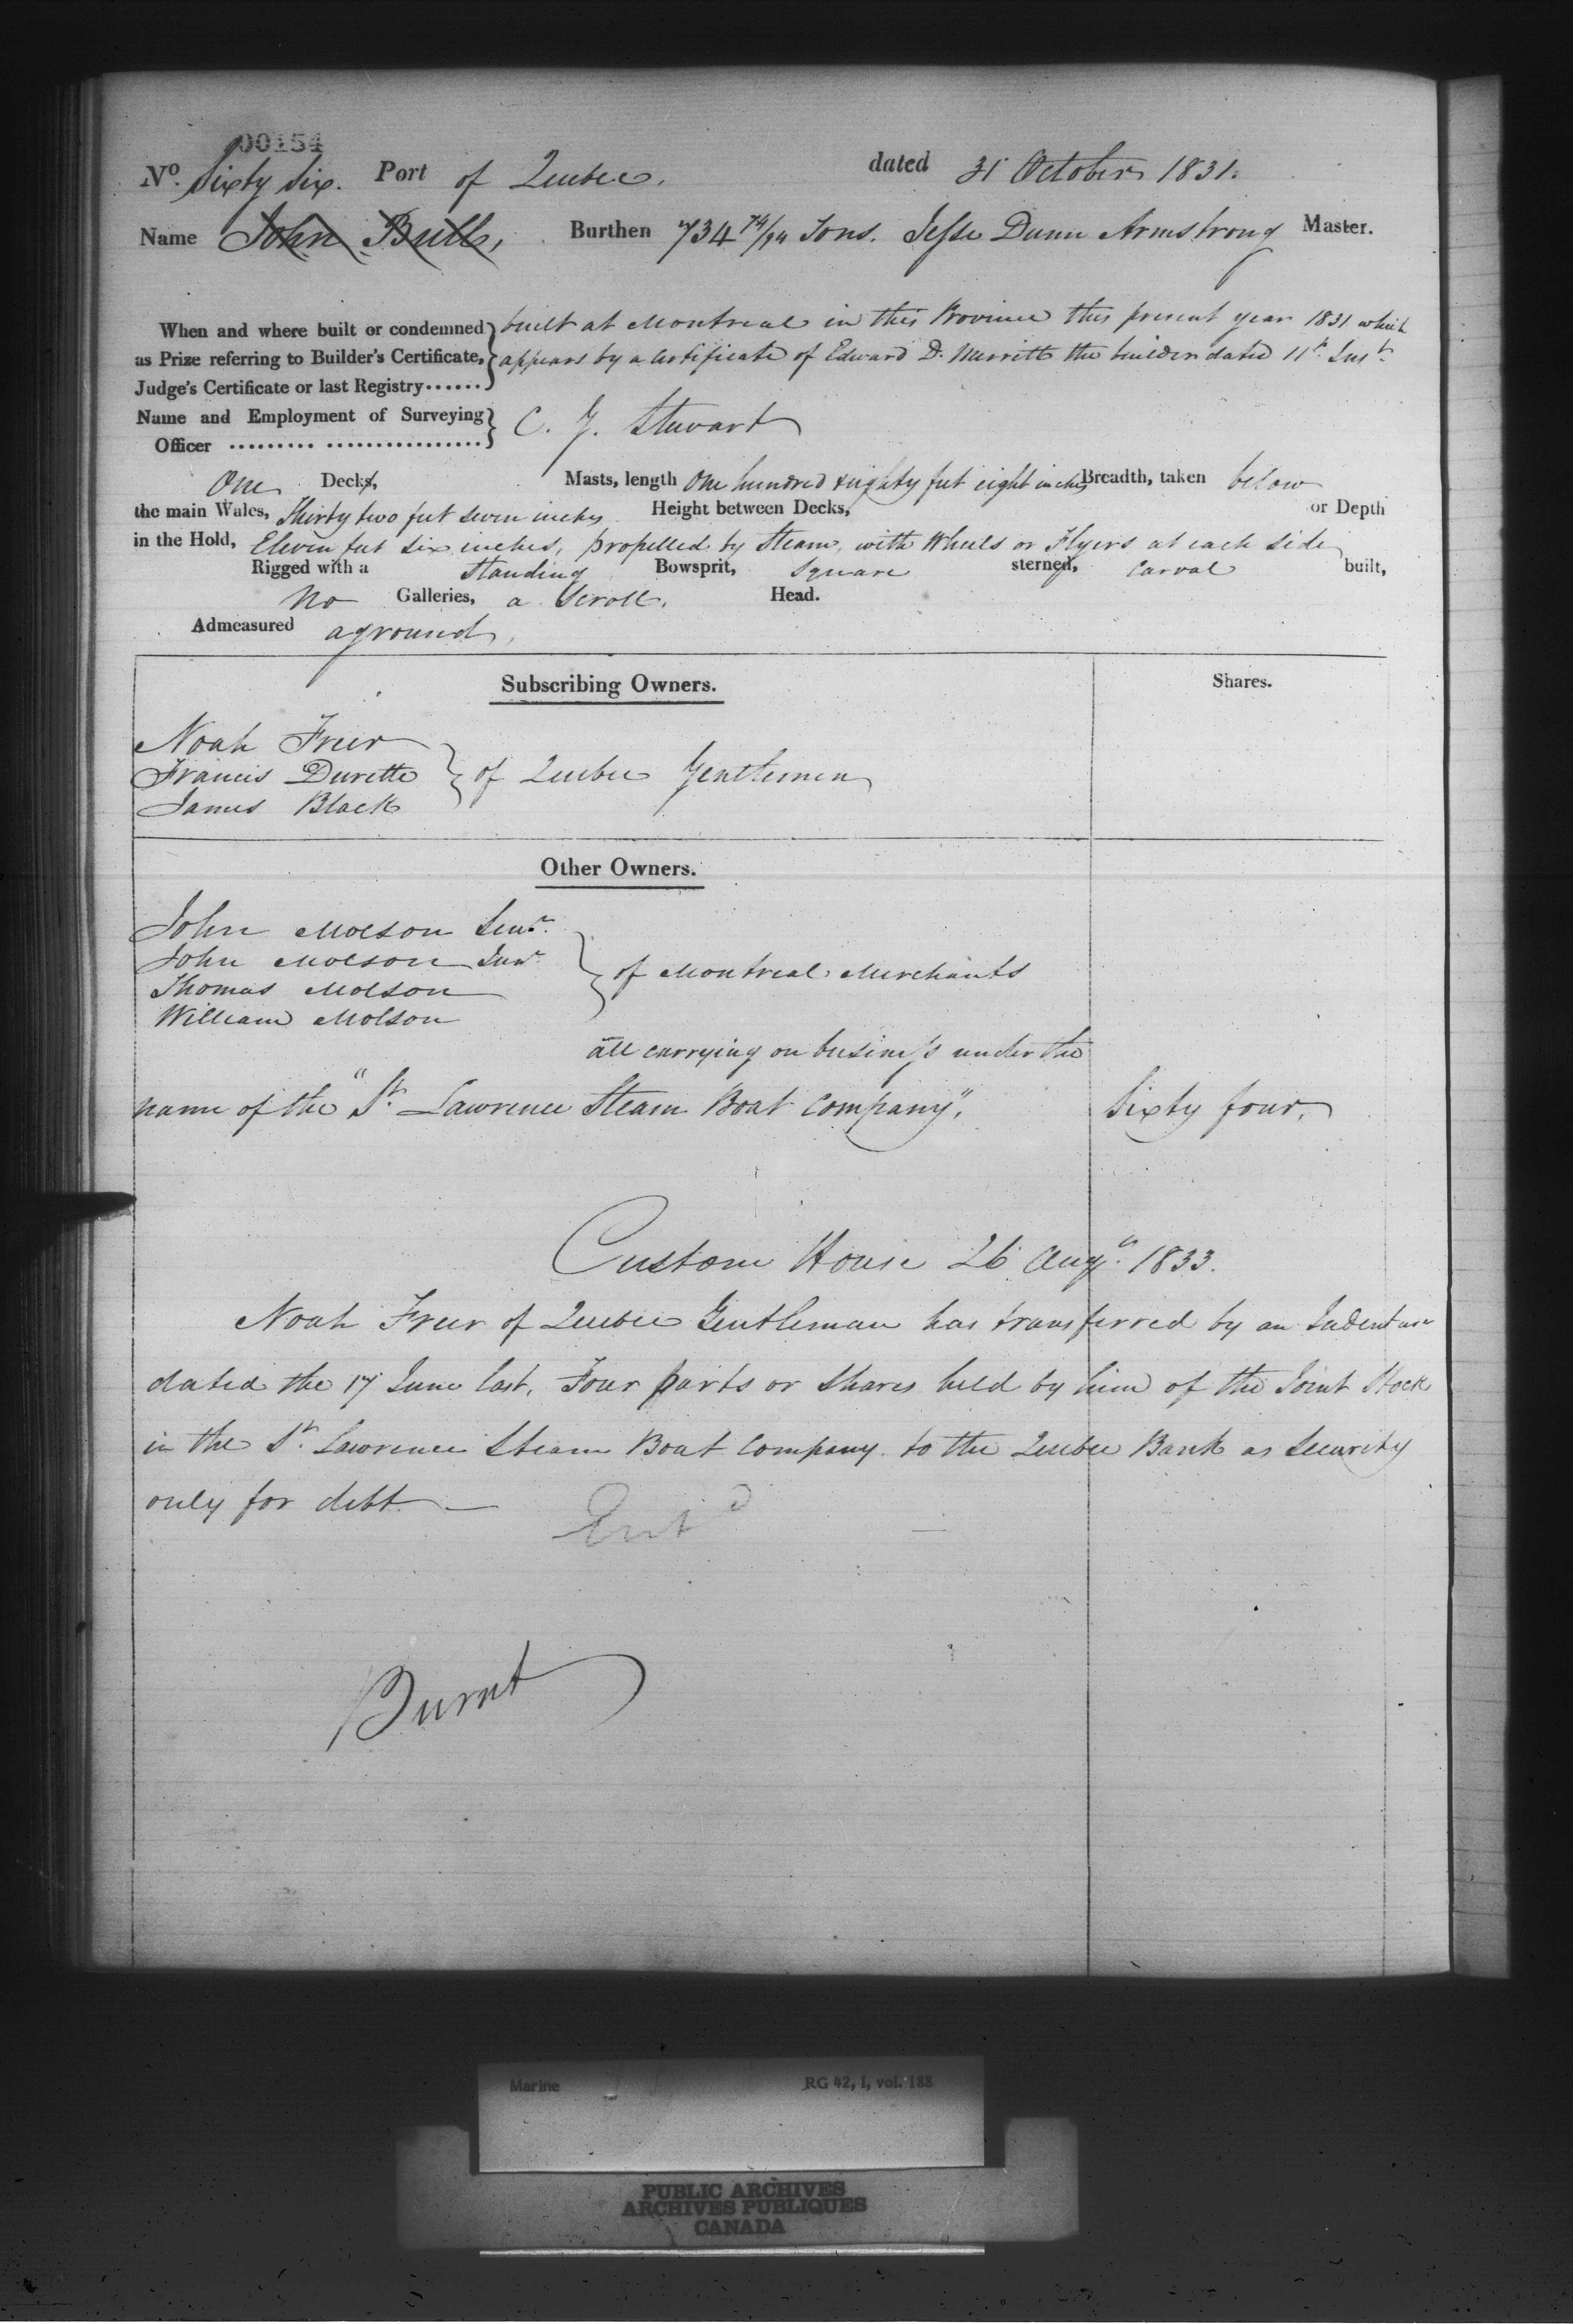 00154
No. Sixty Six. Port of Quebec. dated 31 October 1831.
Name John Bull, Burthen 734 74/94 Tons. Jesse Dunn Armstrong Master.
When and where built or condemned built at Montreal in this Province this present year 1831 which
as Prize referring to Builder's Certificate, appears by a Certificate of Edward D. Merritt the builder dated 11th Inst.
Judge's Certificate or last Registry......
Name and Employment of Surveying
Officer ......... ................. C. G. Stewart
One Decks, Masts, length One hundred & eighty feet eight inches Breadth, taken below
the main Wales, Thirty two feet seven inches Height between Decks, or Depth
in the Hold, Eleven feet six inches, propelled by Steam, with Wheels or Flyers at each side
Rigged with a Standing Bowsprit, Square sterned, Carval built,
No Galleries, a Scroll. Head.
Admeasured aground,
Subscribing Owners. Shares.
Noah Freer
Francis Durette of Quebec Gentlemen
James Black
Other Owners.
John Molson Senr.
John Molson Junr. of Montreal Merchants
Thomas Molson
William Molson
all carrying on business under the
name of the "St. Lawrence Steam Boat Company", Sixty four.
Custom House 26 Augt. 1833.
Noah Freer of Quebec Gentleman has transferred by an Indenture
dated the 17 June last, Four parts or shares held by him of the Joint Stock
in the St. Lawrence Steam Boat Company to the Quebec Bank as Security
only for debt —
Entd
Burnt
Marine RG 42, I, vol. 188
PUBLIC ARCHIVES
ARCHIVES PUBLIQUES
CANADA